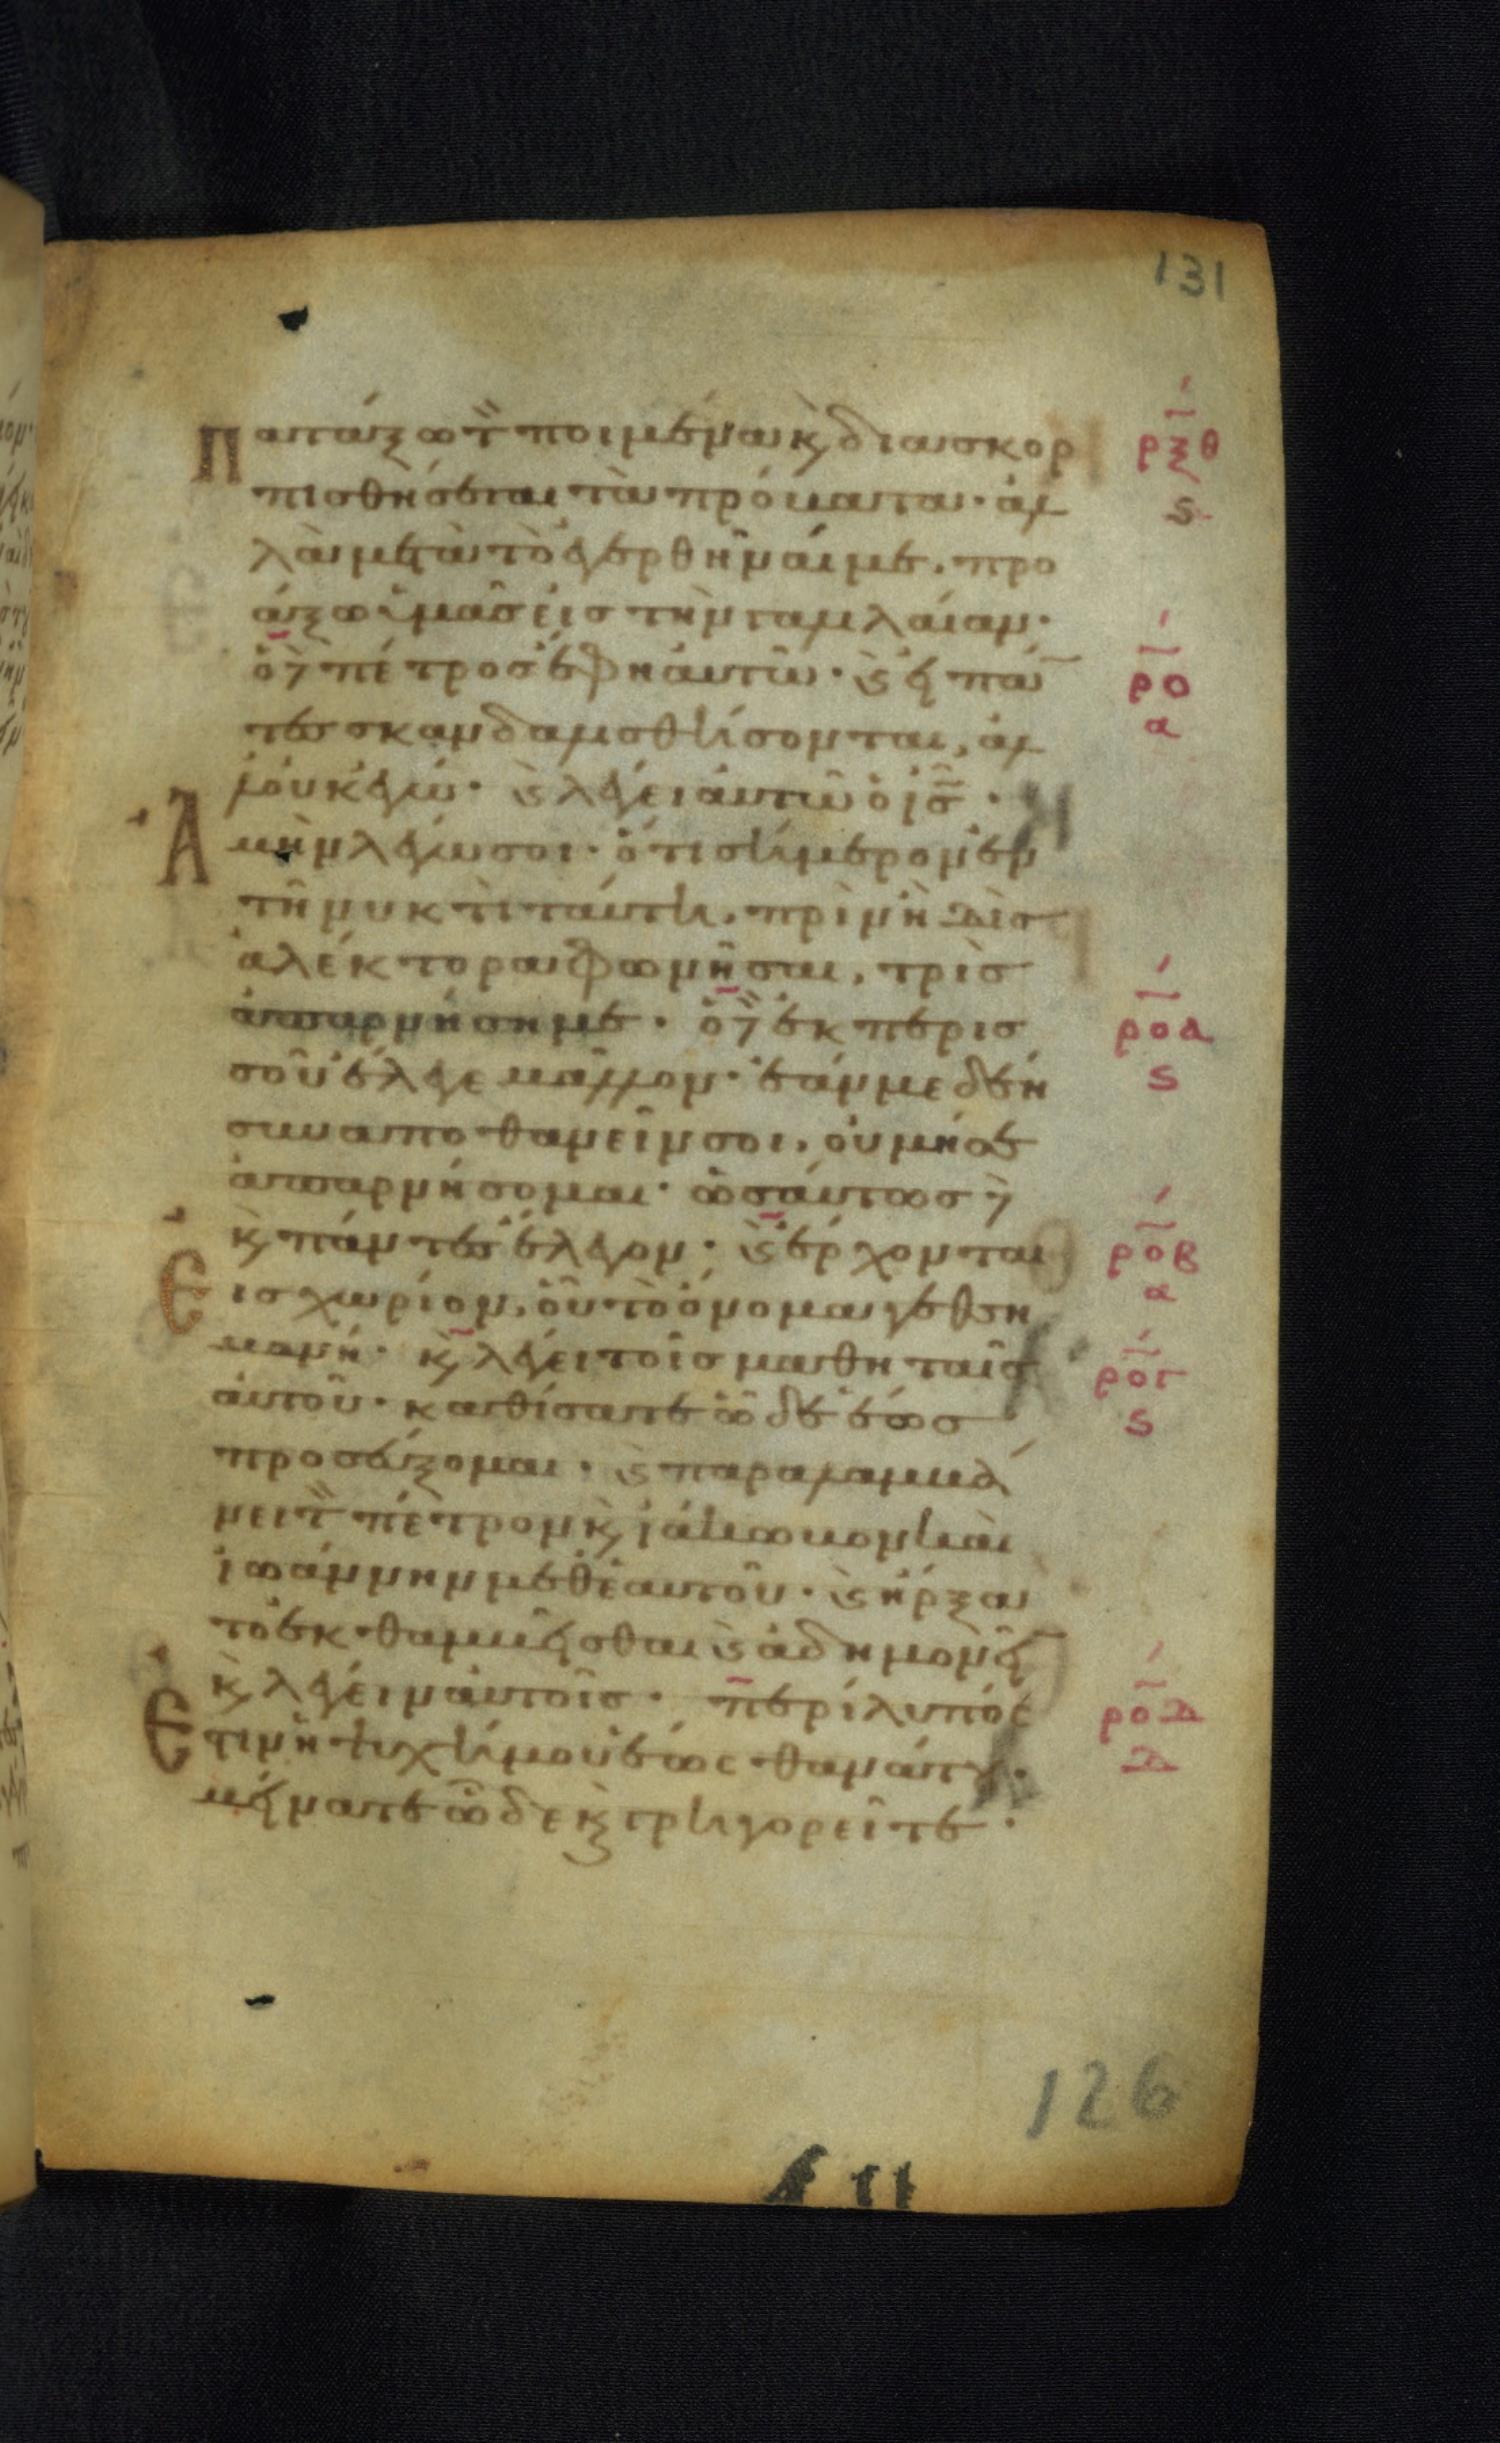 131
Πατάξω τὸν ποιμένα κ̀ διασκορ
πισθήσεται τὰ πρόβατα· ἀλ
λὰ μετὰ τὸ ἐγερθῆναί με, προ
άξω ὑμᾶς εἰς τὴν γαλιλαίαν·
ὁ δ̀ πέτρος ἔφη αὐτῶ· κ̀ εἰ πάν
τες σκανδαλισθήσονται, ἀλ
λ' οὐκ ἐγώ· κ̀ λέγει αὐτῶ ὁ ι̅ς̅·
Ἀμὴν λέγω σοι· ὅτι σήμερον ἐν
τῆ νυκτὶ ταύτη, πρὶν ἢ δὶς
ἀλέκτορα φωνῆσαι, τρὶς
ἀπαρνήση με· ὁ δ̀ ἐκ περισ
σοῦ ἔλεγε μᾶλλον· ἐάν με δέη
συναποθανεῖν σοι, οὐ μή σε
ἀπαρνήσομαι· ὡσαύτως δ̀
κ̀ πάντες ἔλεγον· κ̀ ἔρχονται
Εἰς χωρίον, οὗ τὸ ὄνομα γεθση
μανή· κ̀ λέγει τοῖς μαθηταῖς
αὐτοῦ· καθίσατε ὧδε ἕως
προσεύξομαι· κ̀ παραλαμβά
νει τὸν πέτρον κ̀ ἰάκωβον καὶ
ἰωάννην μεθ' ἑαυτοῦ· κ̀ ἤρξα
το ἐκθαμβεῖσθαι κ̀ ἀδημονεῖν
κ̀ λέγει αὐτοῖς· περίλυπός
Ἐστιν ἡ ψυχή μου ἕως θανάτου·
μείνατε ὧδε κ̀ γρηγορεῖτε·
ρξθ
ς
ρο
α
ροα
ς
ροβ
α
ρογ
ς
ροδ
δ
126